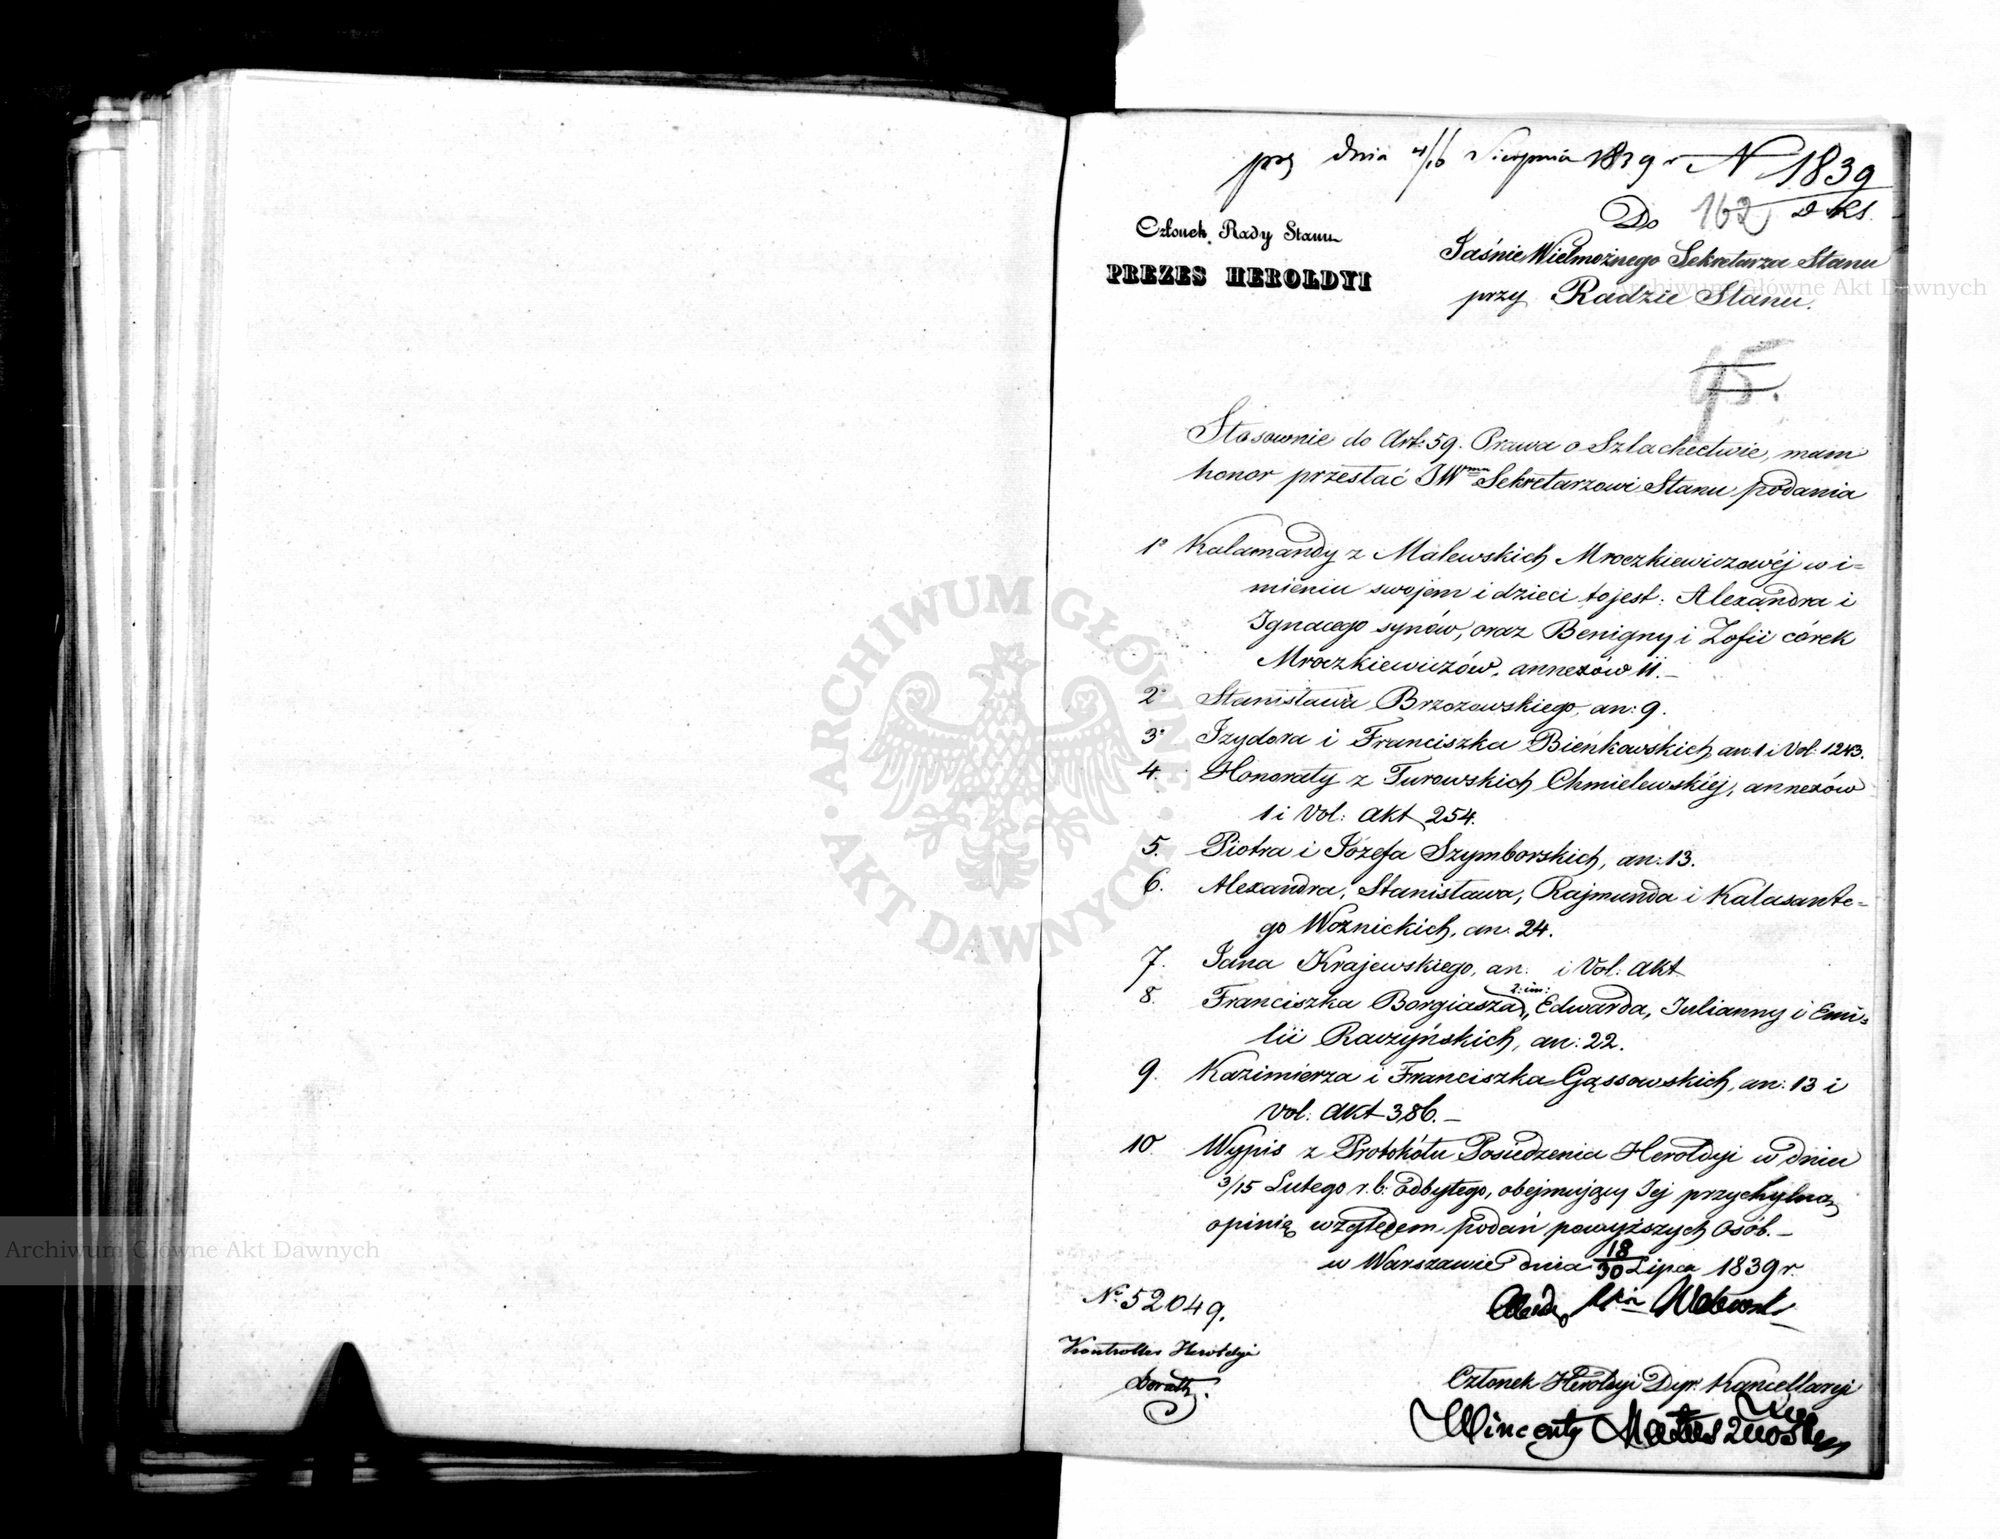 dnia 4/16 Sierpnia 1839 r N 1839
162
Do
Członek Rady Stanu
PREZES HEROLDYI
Jaśnie Wielmożnego Sekretarza Stanu
przy Radzie Stanu.
95.
Stosownie do Art: 59. Prawa o Szlachectwie, mam
honor przesłać JWmu Sekretarzowi Stanu podania
1° Kalamandy z Malewskich Mroczkiewiczowéj w i=
mieniu swojem i dzieci to jest: Alexandra i
Ignacego synów, oraz Benigny i Zofii córek
Mroczkiewiczów, annexów 11.—
2° Stanisława Brzozowskiego, an: 9.
3° Izydora i Franciszka Bieńkowskich, an 1 i Vol: 1243.
4. Honoraty z Turowskich Chmielewskiéj, annexów
1 i Vol: Akt 254.
5. Piotra i Józefa Szymborskich, an: 13.
6. Alexandra, Stanisława, Rajmunda i Kalasante=
go Woznickich, an: 24.
7. Jana Krajewskiego, an: i Vol: Akt
8. Franciszka Borgiasza 2: im:, Edwarda, Julianny i Emi=
lii Raczyńskich, an: 22.
9. Kazimierza i Franciszka Gąssowskich, an: 13 i
Vol: Akt 386.—
10. Wypis z Protokółu Posiedzenia Heroldyi w dniu
3/15 Lutego r. b. odbytego, obejmujący Jej przychylną
opinią względem podań powyższych Osób.—
w Warszawie dnia 18/30 Lipca 1839 r.
No 52049.
Kontroller Heroldyi
Członek Heroldyi Dyr. Kancellaryi
Wincenty
ARCHIWUM GŁÓWNE AKT DAWNYCH
Archiwum Główne Akt Dawnych
Archiwum Główne Akt Dawnych